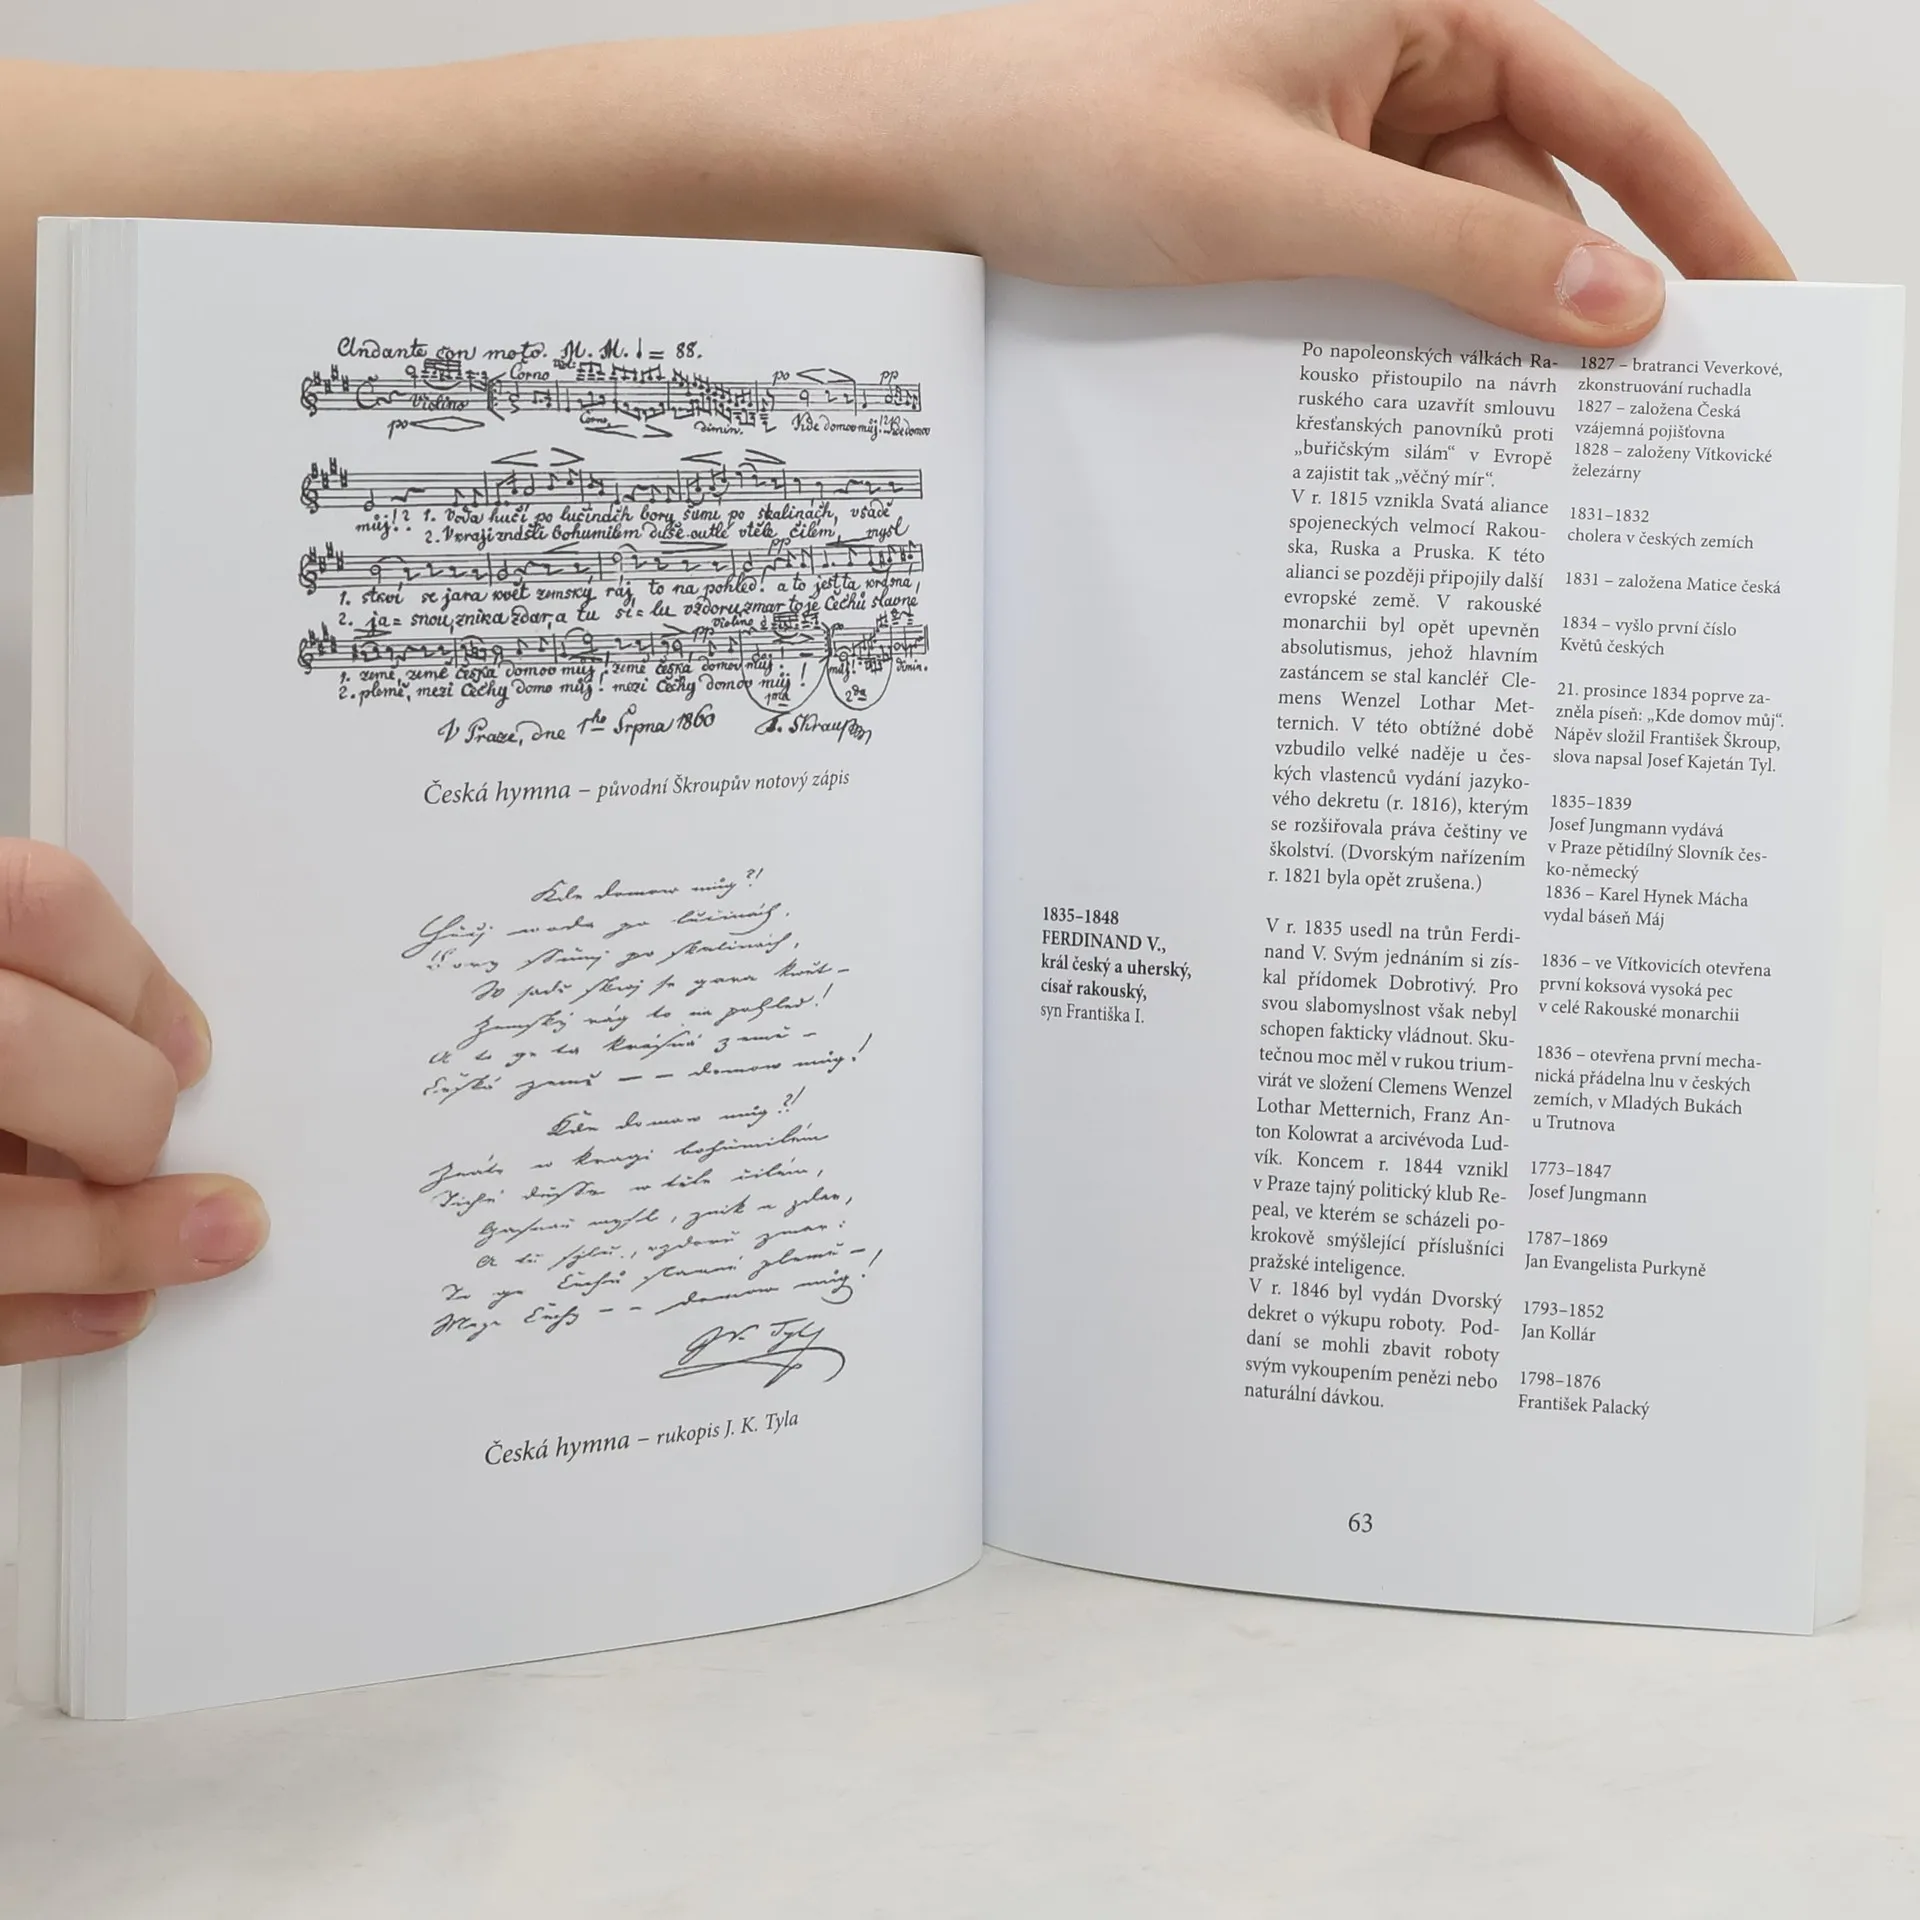 Andante con moto. M. M. ♩ = 88.
Corno
Violino
po
pp
po
Corno
dimin.
Kde domov můj!? Kde domov
můj!? 1. Voda hučí po lučinách bory šumí po skalinách, vsadě
2. V kraji znáš-li bohumilém duše outlé v těle čilém, mysl
pp
1. stkví se jara květ zemský ráj to na pohled! a to jest ta krásná,
2. ja= snou, znika zdar, a tu si= lu vzdoru zmar to je Čechů slavné
violino
pp
po
1. země, země česká domov můj! země česká domov můj!
2. plemě, mezi Čechy domo můj! mezi Čechy domov můj!
1ma
můj!
2da
dimin.
V Praze, dne 1ho Srpna 1860
F. Skraup
Česká hymna – původní Škroupův notový zápis
Kde domow můg?!
Hučj woda po lučinách,
Bory ssumj po skalinách,
W sadě stkwj se gara kwět –
Zemský rág to na pohled!
A to ge ta krásná země –
Česká země – – domow můg!
Kde domow můg?!
Znáte w kragi bohumilém
Tiché dusse w těle čilém,
Gasnau mysl, znik a zdar,
A tu sýlu, wzdoru zmar:
To ge Čechů slawné plemě –
Mezi Čechy – – domow můg!
J. K. Tyl
Česká hymna – rukopis J. K. Tyla
1835–1848
FERDINAND V.,
král český a uherský,
císař rakouský,
syn Františka I.
Po napoleonských válkách Ra-
kousko přistoupilo na návrh
ruského cara uzavřít smlouvu
křesťanských panovníků proti
„buřičským silám“ v Evropě
a zajistit tak „věčný mír“.
V r. 1815 vznikla Svatá aliance
spojeneckých velmocí Rakou-
ska, Ruska a Pruska. K této
alianci se později připojily další
evropské země. V rakouské
monarchii byl opět upevněn
absolutismus, jehož hlavním
zastáncem se stal kancléř Cle-
mens Wenzel Lothar Met-
ternich. V této obtížné době
vzbudilo velké naděje u čes-
kých vlastenců vydání jazyko-
vého dekretu (r. 1816), kterým
se rozšiřovala práva češtiny ve
školství. (Dvorským nařízením
r. 1821 byla opět zrušena.)
V r. 1835 usedl na trůn Ferdi-
nand V. Svým jednáním si zís-
kal přídomek Dobrotivý. Pro
svou slabomyslnost však nebyl
schopen fakticky vládnout. Sku-
tečnou moc měl v rukou trium-
virát ve složení Clemens Wenzel
Lothar Metternich, Franz An-
ton Kolowrat a arcivévoda Lud-
vík. Koncem r. 1844 vznikl
v Praze tajný politický klub Re-
peal, ve kterém se scházeli po-
krokově smýšlející příslušníci
pražské inteligence.
V r. 1846 byl vydán Dvorský
dekret o výkupu roboty. Pod-
daní se mohli zbavit roboty
svým vykoupením penězi nebo
naturální dávkou.
1827 – bratranci Veverkové,
zkonstruování ruchadla
1827 – založena Česká
vzájemná pojišťovna
1828 – založeny Vítkovické
železárny
1831–1832
cholera v českých zemích
1831 – založena Matice česká
1834 – vyšlo první číslo
Květů českých
21. prosince 1834 poprve za-
zněla píseň: „Kde domov můj“.
Nápěv složil František Škroup,
slova napsal Josef Kajetán Tyl.
1835–1839
Josef Jungmann vydává
v Praze pětidílný Slovník čes-
ko-německý
1836 – Karel Hynek Mácha
vydal báseň Máj
1836 – ve Vítkovicích otevřena
první koksová vysoká pec
v celé Rakouské monarchii
1836 – otevřena první mecha-
nická přádelna lnu v českých
zemích, v Mladých Bukách
u Trutnova
1773–1847
Josef Jungmann
1787–1869
Jan Evangelista Purkyně
1793–1852
Jan Kollár
1798–1876
František Palacký
63